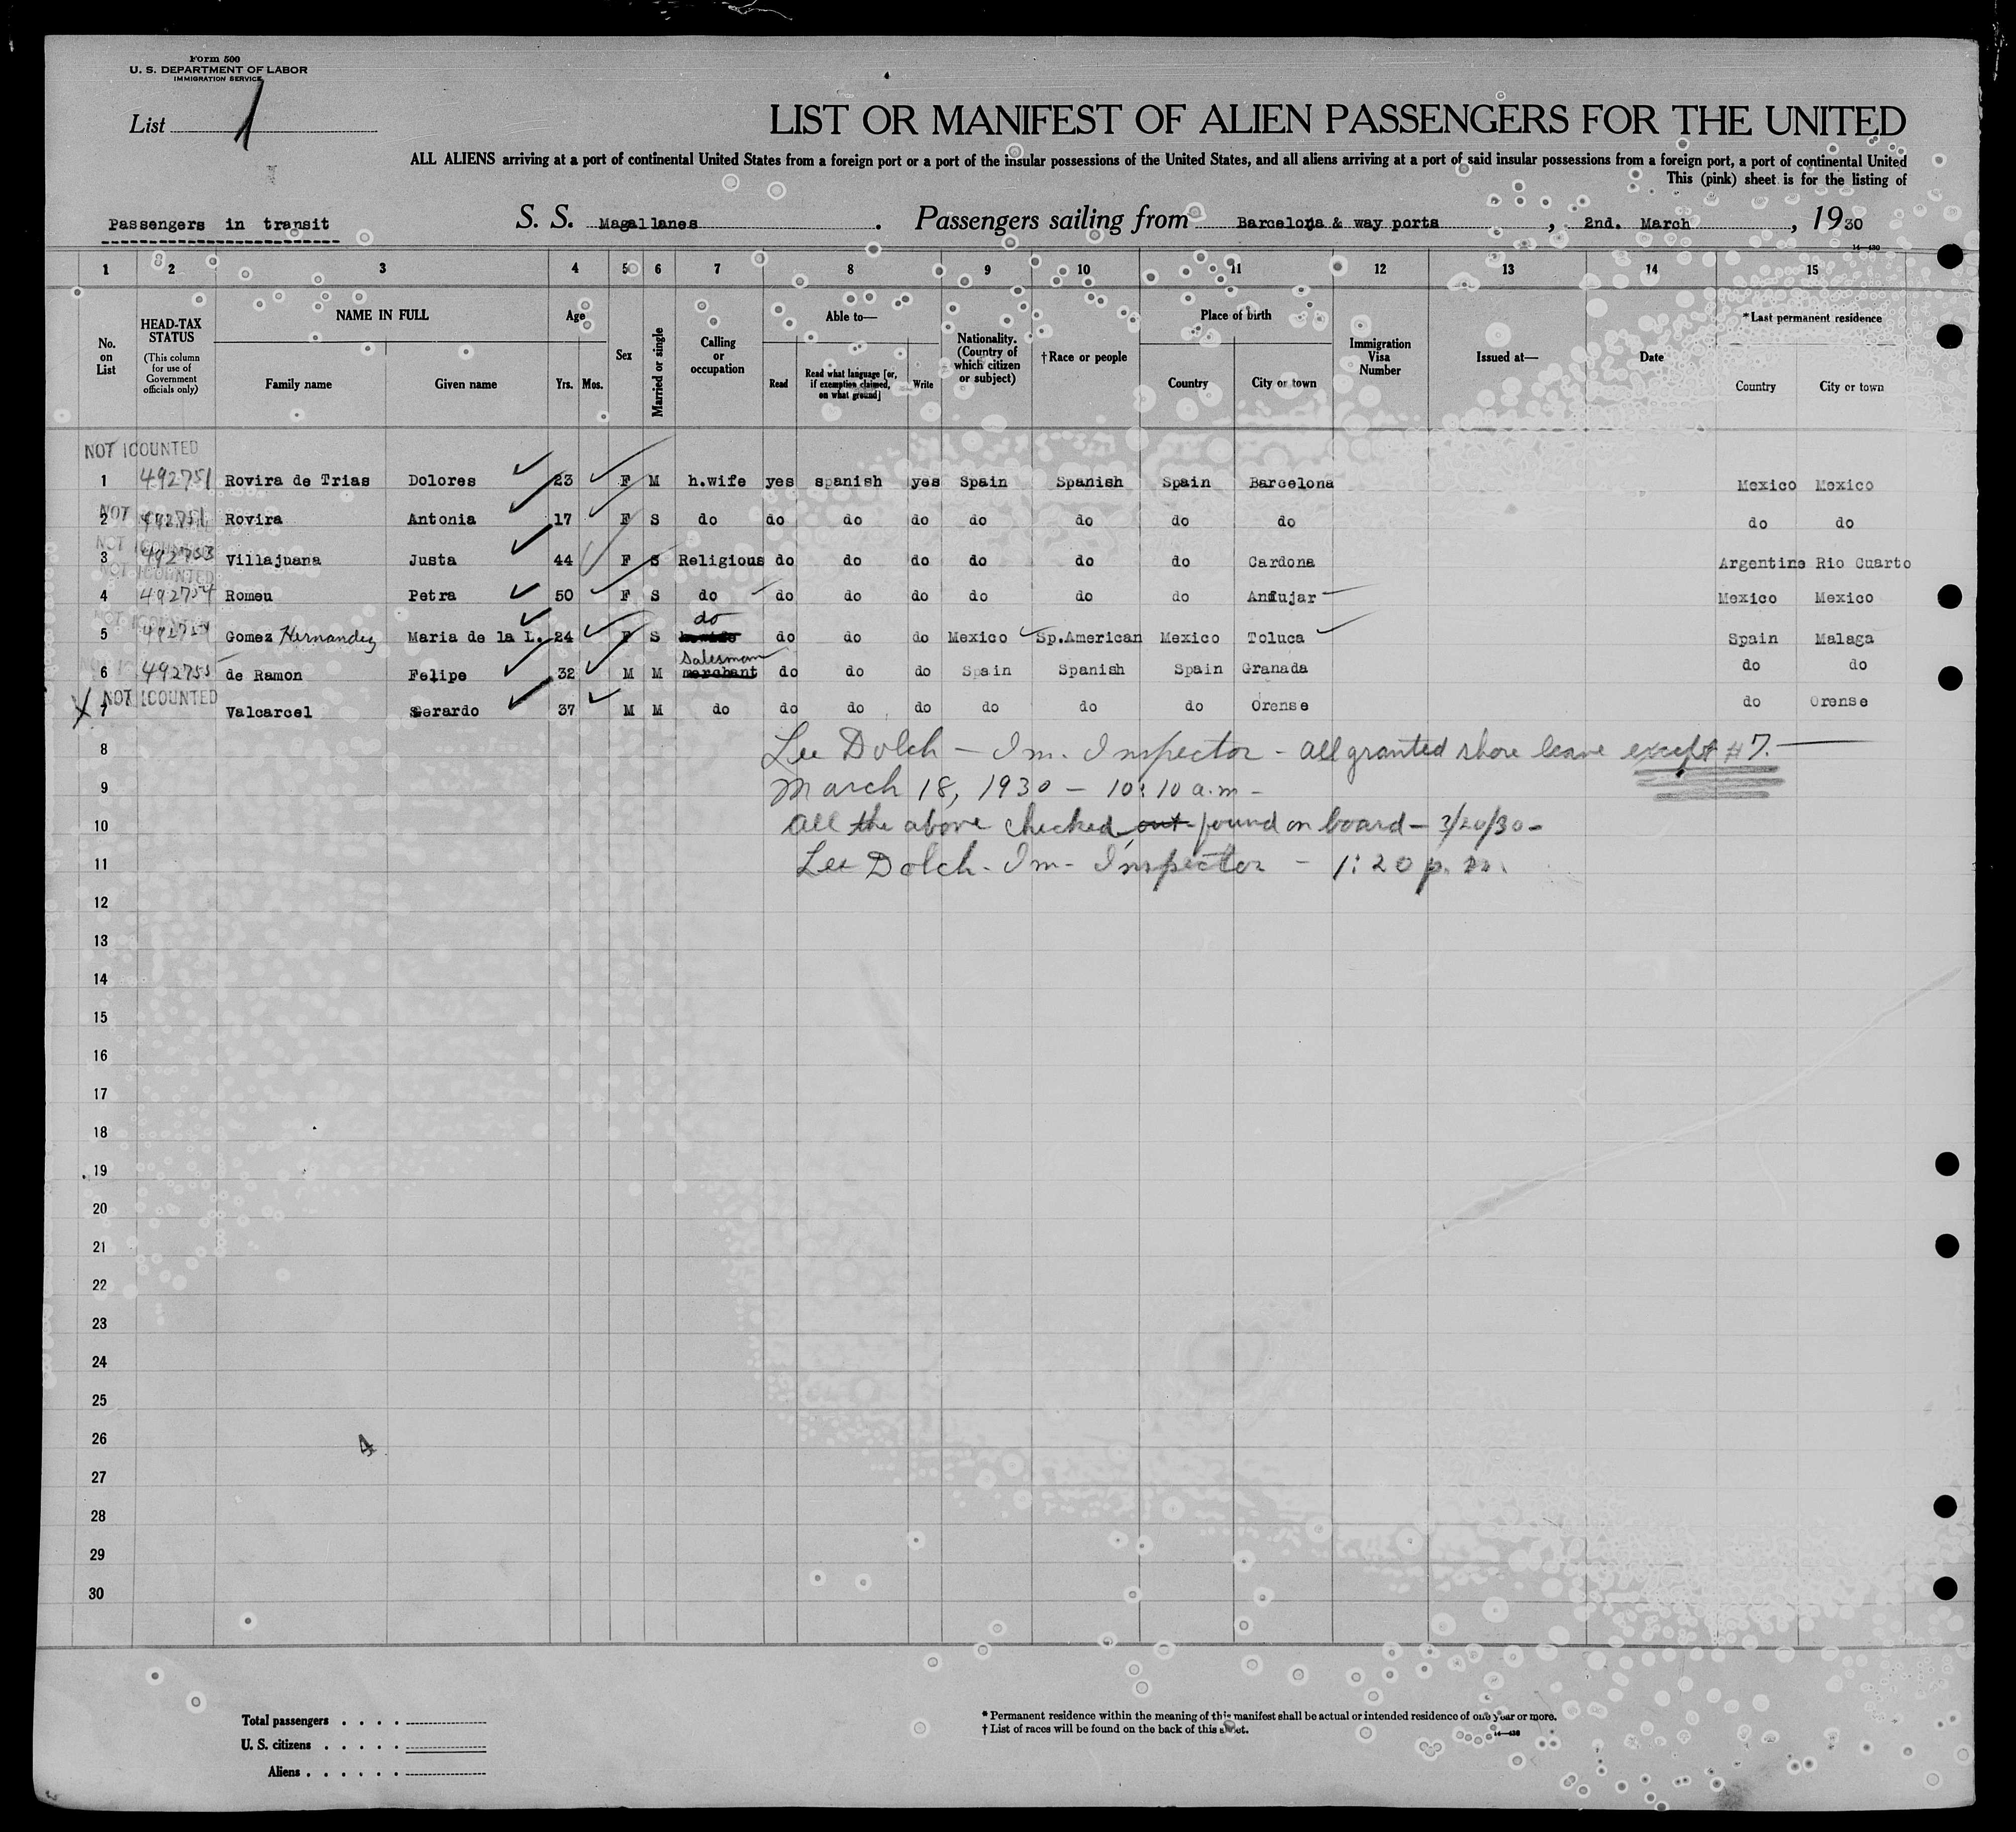 Form 500
U. S. DEPARTMENT OF LABOR
IMMIGRATION SERVICE
List 1
LIST OR MANIFEST OF ALIEN PASSENGERS FOR THE UNITED
ALL ALIENS arriving at a port of continental United States from a foreign port or a port of the insular possessions of the United States, and all aliens arriving at a port of said insular possessions from a foreign port, a port of continental United
This (pink) sheet is for the listing of
Passengers in transit S. S. Magallanes. Passengers sailing from Barcelona & way ports, 2nd. March, 1930
14—430
1 2 3 4 5 6 7 8 9 10 11 12 13 14 15
No. on List HEAD-TAX STATUS (This column for use of Government officials only) NAME IN FULL Family name Given name Age Yrs. Mos. Sex Married or single Calling or occupation Able to— Read Read what language [or, if exemption claimed, on what ground] Write Nationality. (Country of which citizen or subject) †Race or people Place of birth Country City or town Immigration Visa Number Issued at— Date *Last permanent residence Country City or town
NOT COUNTED
1 492751 Rovira de Trias Dolores 23 F M h.wife yes spanish yes Spain Spanish Spain Barcelona Mexico Mexico
NOT
2 Rovira Antonia 17 F S do do do do do do do do do do
NOT COUNTED
3 492753 Villajuana Justa 44 F S Religious do do do do do do Cardona Argentine Rio Cuarto
NOT COUNTED
4 492754 Romeu Petra 50 F S do do do do do do do Andujar Mexico Mexico
do
5 Gomez Hernandez Maria de la L. 24 F S h.wife do do do Mexico Sp.American Mexico Toluca Spain Malaga
Salesman
6 492755 de Ramon Felipe 32 M M merchant do do do Spain Spanish Spain Granada do do
X NOT COUNTED
7 Valcarcel Gerardo 37 M M do do do do do do do Orense do Orense
8 Lee Dolch - Im. Inspector - all granted shore leave except #7.
9 March 18, 1930 - 10:10 a.m -
10 All the above checked out found on board - 3/20/30 -
11 Lee Dolch - Im - Inspector - 1:20 p. m.
12
13
14
15
16
17
18
19
20
21
22
23
24
25
26
4
27
28
29
30
Total passengers . . . .
U. S. citizens . . . . .
Aliens . . . . . .
* Permanent residence within the meaning of this manifest shall be actual or intended residence of one year or more.
† List of races will be found on the back of this sheet.
14—430